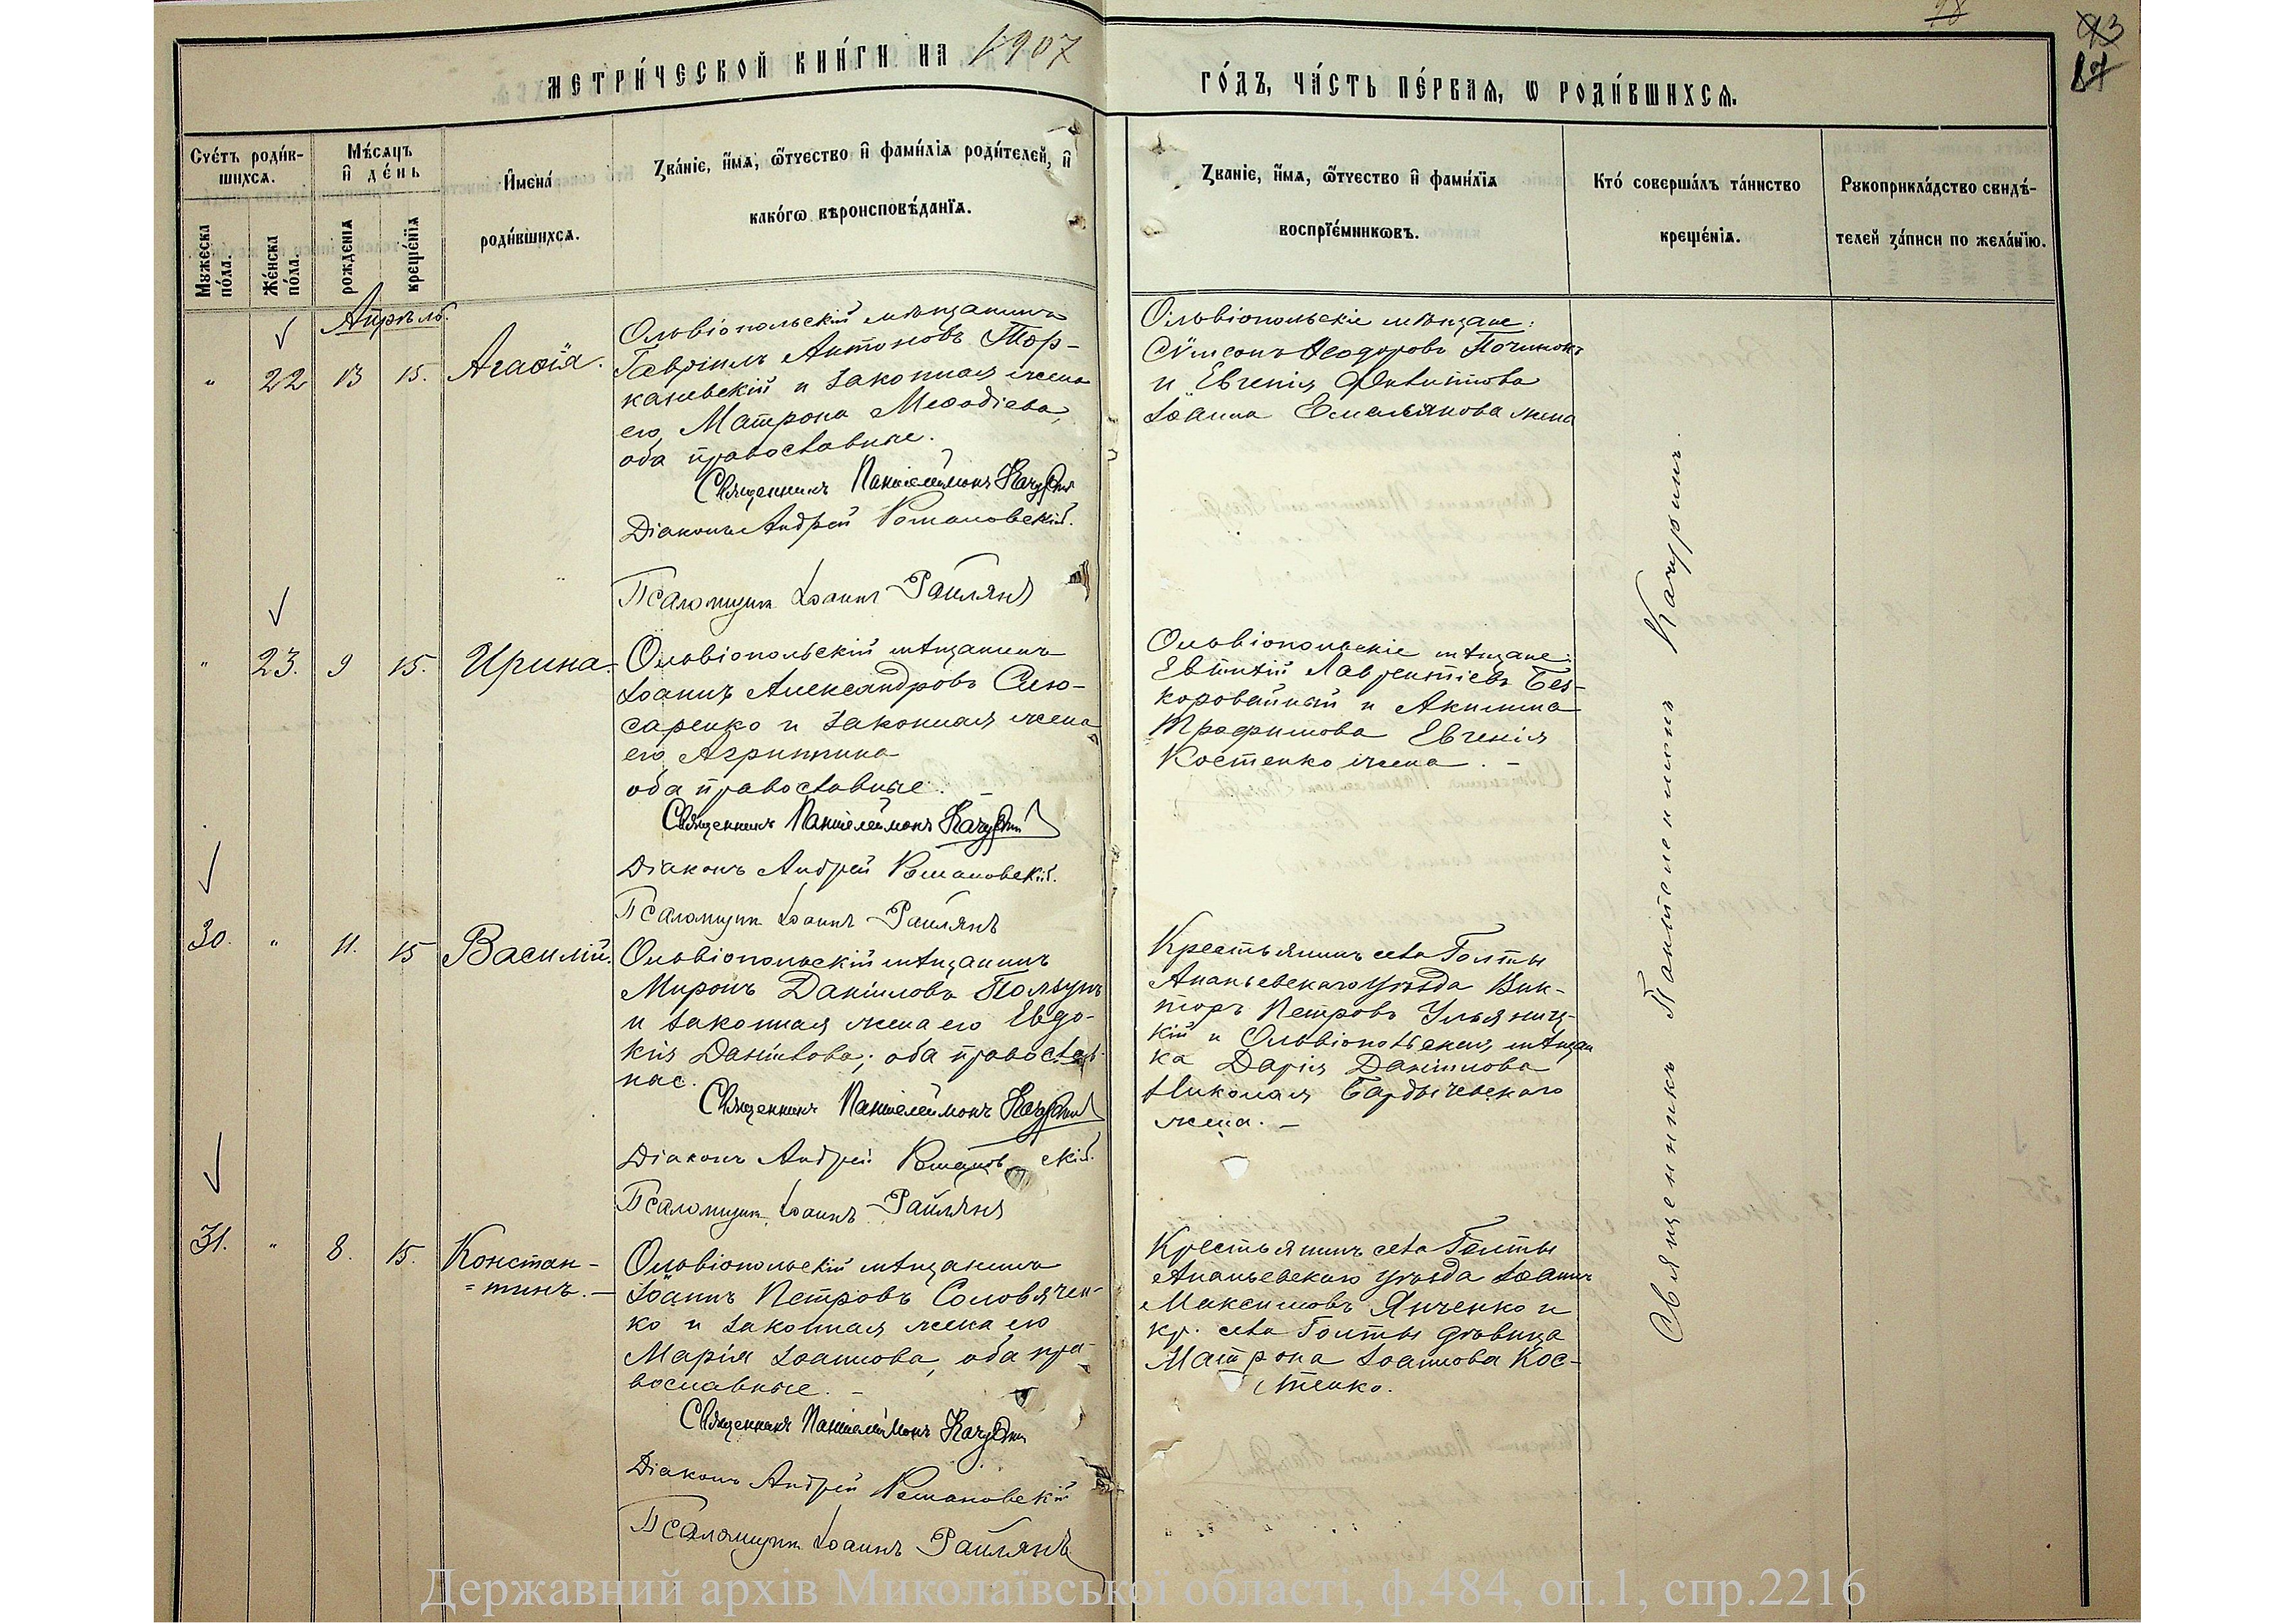 метри́ческой кни́ги на 1907
го́дъ, ча́сть пе́рваѧ, ѡ роди́вшихсѧ.
78
43
87
Сче́тъ роди́в-
шихсѧ.
Мѣ́сѧцъ
и҆ де́нь
И҆мена́
роди́вшихсѧ.
Мужеска
по́ла.
Же́нска
по́ла.
рожденїѧ
креще́нїѧ
Зва́нїе, и҆́мѧ, ѻ҆́тчество и҆ фами́лїѧ роди́телей, и҆
како́гѡ вѣроисповѣ́данїѧ.
Зва́нїе, и҆́мѧ, ѻ҆́тчество и҆ фами́лїѧ
воспрїе́мникѡвъ.
Кто́ соверша́лъ та́инство
креще́нїѧ.
Рукоприкла́дство свидѣ́-
телей за́писи по жела́нїю.
Апрѣль.
" 22 13 15. Агафія.
Ольвіопольскій мѣщанинъ
Гавріилъ Антоновъ Тор-
каневскій и законная жена
его Матрона Меѳодіева,
оба православные.
Священникъ Пантелеймонъ Качурин
Діаконъ Андрей Романовскій.
Псаломщик Іоаннъ Райлянъ
Ольвіопольскіе мѣщане:
Сѵмеонъ Ѳеодоровъ Починокъ
и Евгенія
Іоанна Емельянова жена
" 23. 9 15. Ирина.
Ольвіопольскій мѣщанинъ
Іоаннъ Александровъ Слю-
саренко и законная жена
его Агриппина
оба православные.
Священникъ Пантелеймонъ Качурин
Діаконъ Андрей Романовскій.
Псаломщик Іоаннъ Райлянъ
Ольвіопольскіе мѣщане:
Евтихій Лаврентіевъ Без-
коровайный и Акилина
Трофимова Евгенія
Костенко жена. –
30. " 11. 15 Василій.
Ольвіопольскій мѣщанинъ
Миронъ Даніиловъ
и законная жена его Евдо-
кія Даніилова; оба православ-
ные.
Священникъ Пантелеймонъ Качурин
Діаконъ Андрей Романовскій.
Псаломщик Іоаннъ Райлянъ
Крестьянинъ села Голты
Ананьевскаго уѣзда Вик-
торъ Петровъ Ульяниц-
кій и Ольвіопольская мѣщан
ка Дарія Даніилова
Николая Бардычевскаго
жена. –
31. " 8. 15. Констан-
=тинъ. –
Ольвіопольскій мѣщанинъ
Іоаннъ Петровъ Соловячен-
ко и законная жена его
Марія Іоаннова, оба пра-
вославные. –
Священникъ Пантелеймонъ Качурин
Діаконъ Андрей Романовскій
Псаломщик Іоаннъ Райлянъ
Крестьянинъ села Голты
Ананьевскаго уѣзда Іоаннъ
Максимовъ Янченко и
кр. села Голты дѣвица
Матрона Іоаннова Кос-
тенко.
Священникъ Пантелеимонъ Качуринъ.
Державний архів Миколаївської області, ф.484, оп.1, спр.2216